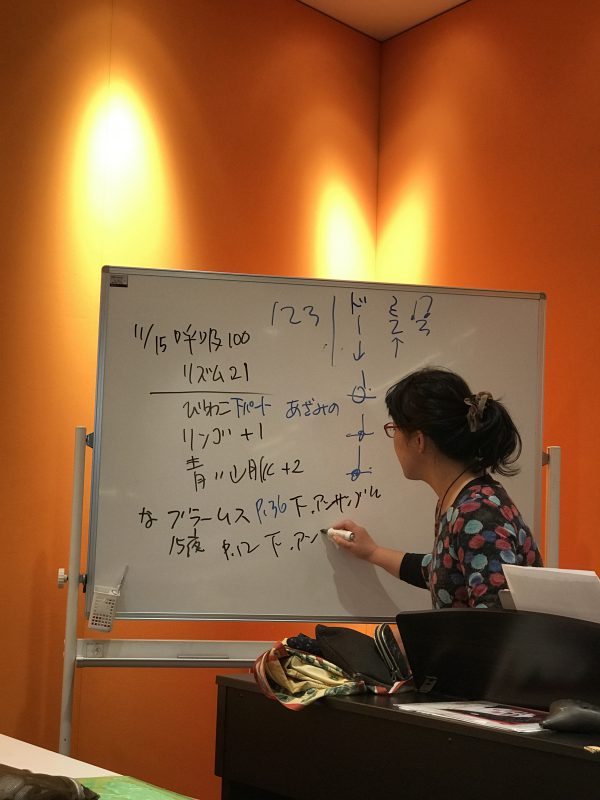 123 ドー↓
11/15 呼吸100
リズム21
びわこ 下パート あざみの
リンゴ+1
青い山脈+2
な ブラームス P.36 下.アンサンブル
15夜 P.12 下.アン